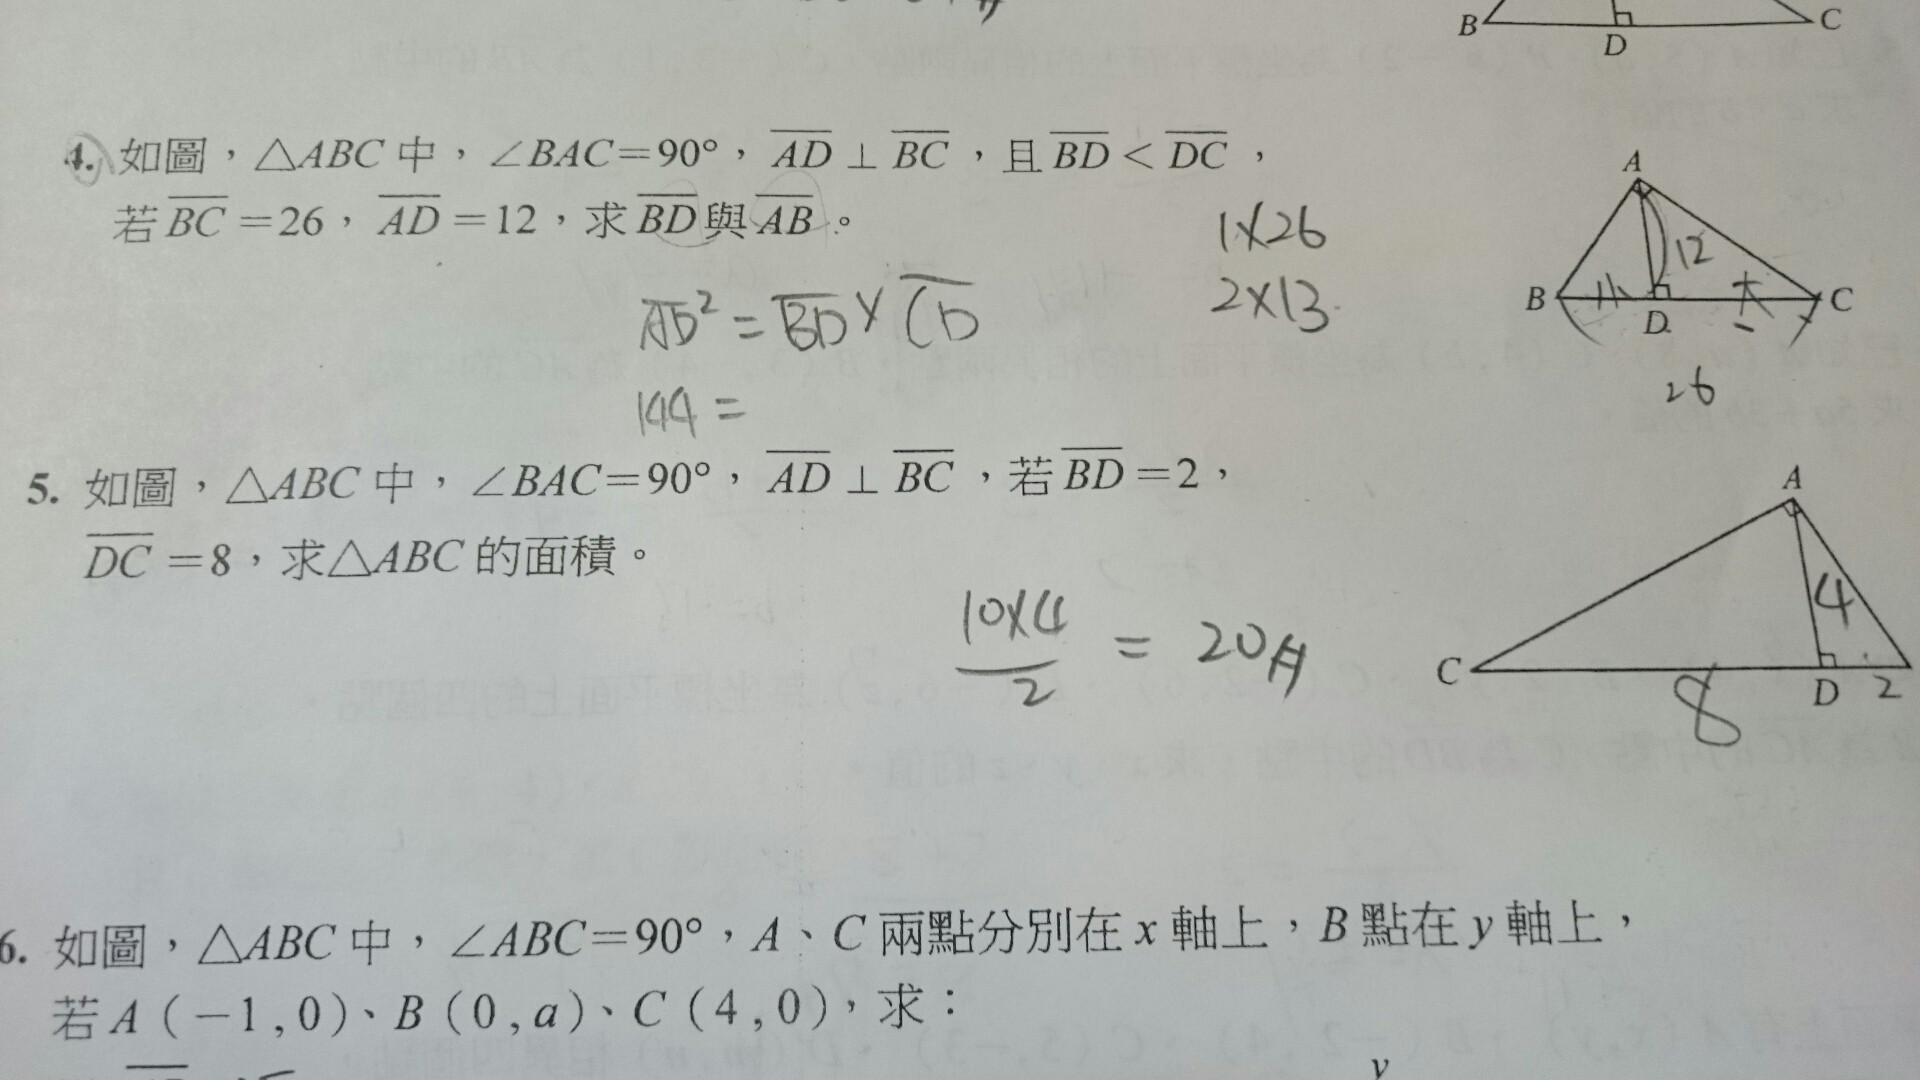 B D C
4. 如圖，△ABC 中，∠BAC=90°，AD⊥BC，且BD<DC，
若BC=26，AD=12，求BD與AB。
1×26
2×13
AD²=BD×CD
144=
A
12
B 小 D 大 C
26
5. 如圖，△ABC 中，∠BAC=90°，AD⊥BC，若BD=2，
DC=8，求△ABC 的面積。
10×4
2
= 20
A
4
C 8 D 2
6. 如圖，△ABC 中，∠ABC=90°，A、C 兩點分別在 x 軸上，B 點在 y 軸上，
若 A（-1,0）、B（0,a）、C（4,0），求：
y